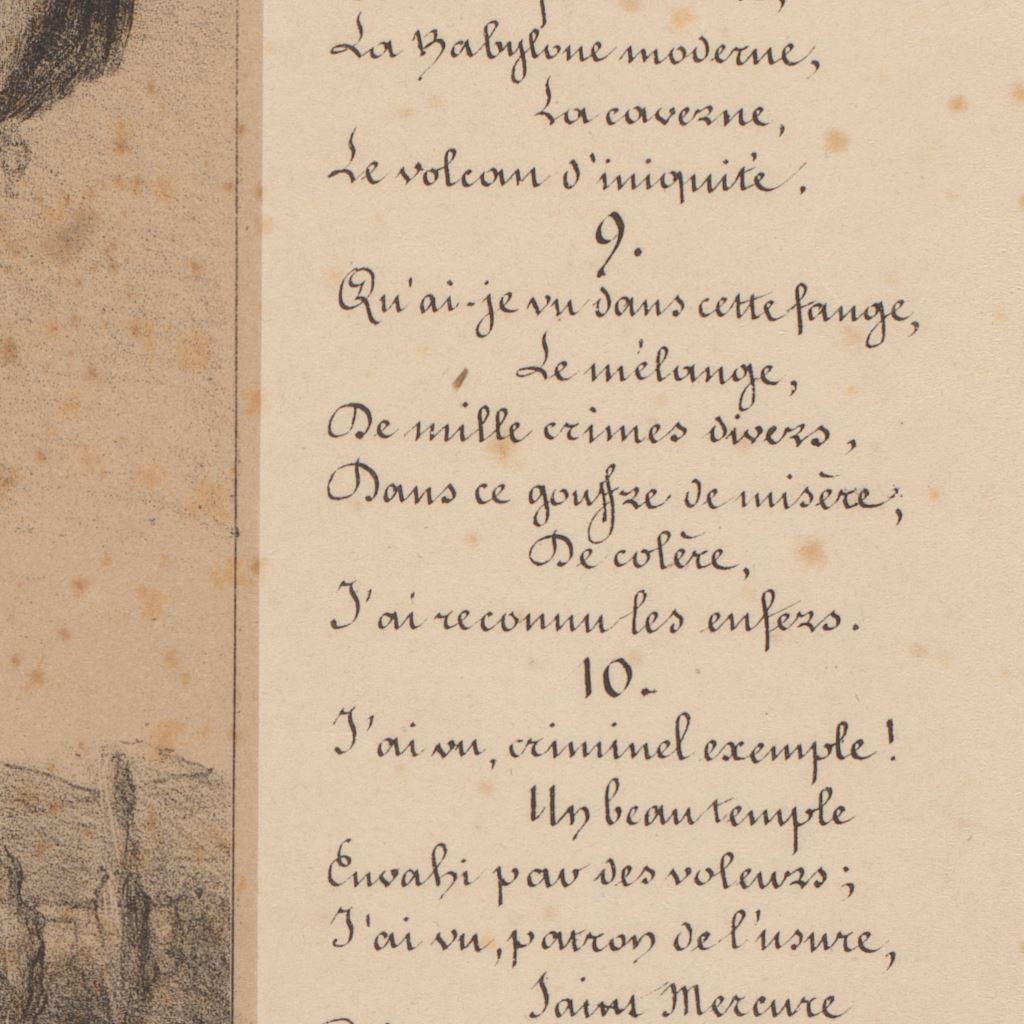 La Babylone moderne,
La caverne,
Le volcan d'iniquité.
9.
Qu'ai-je vu dans cette fange,
Le mélange,
De mille crimes divers,
Dans ce gouffre de misère,
De colère,
J'ai reconnu les enfers.
10.
J'ai vu, criminel exemple!
Un beau temple
Envahi par des voleurs;
J'ai vu, patron de l'usure,
Saint Mercure